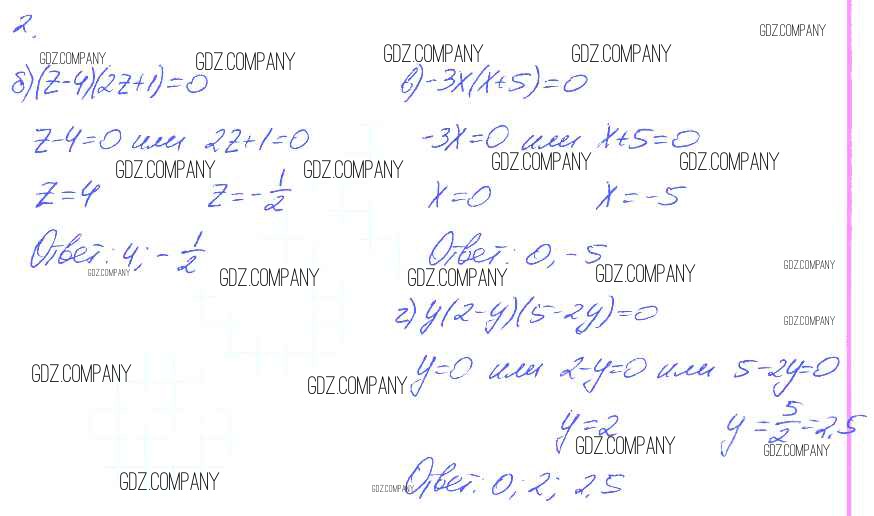 2.
GDZ.COMPANY
GDZ.COMPANY GDZ.COMPANY GDZ.COMPANY GDZ.COMPANY
б) (z-4)(2z+1)=0
z-4=0 или 2z+1=0
GDZ.COMPANY GDZ.COMPANY
z=4 z=-1/2
Ответ: 4; -1/2
GDZ.COMPANY GDZ.COMPANY
в) -3x(x+5)=0
-3x=0 или x+5=0
GDZ.COMPANY GDZ.COMPANY
x=0 x=-5
Ответ: 0, -5
GDZ.COMPANY GDZ.COMPANY GDZ.COMPANY
г) y(2-y)(5-2y)=0
GDZ.COMPANY
y=0 или 2-y=0 или 5-2y=0
GDZ.COMPANY GDZ.COMPANY
y=2 y=5/2=2,5
GDZ.COMPANY GDZ.COMPANY
Ответ: 0; 2; 2,5
GDZ.COMPANY GDZ.COMPANY